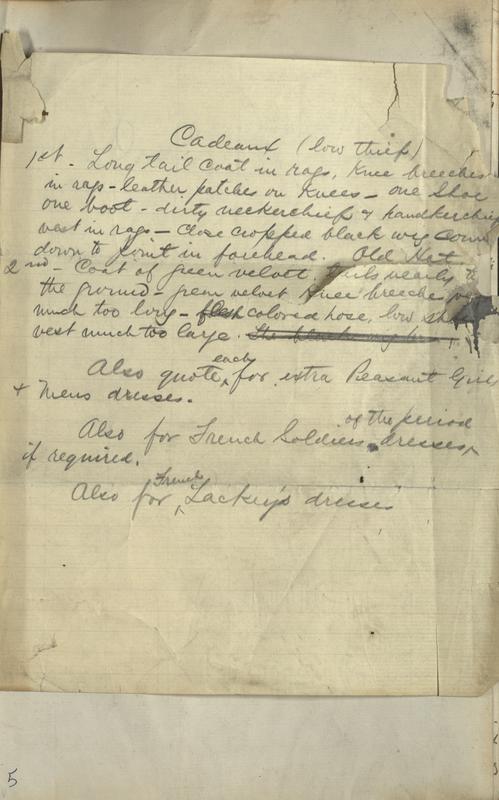 Cadeaux (low thief)
1st - Long tail coat in rags, Knee breeches
in rags - leather patches on Knees - one Shoe
one boot - dirty neckerchief & handkerchief
vest in rags - Close cropped black wig
down to point in forehead. Old Hat
2nd - Coat of green velvet tails nearly to
the ground - green velvet Knee breeches
much too long - flesh colored hose, low
vest much too large. The black wig
Also quote each for extra Peasant Girls
& Mens dresses.
Also for French Soldiers dresses of the period
if required.
Also for French Lackeys dresses
5